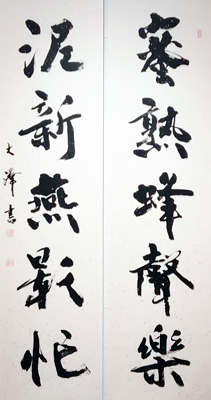 蜜熟蜂聲樂
泥新燕影忙
大澤書